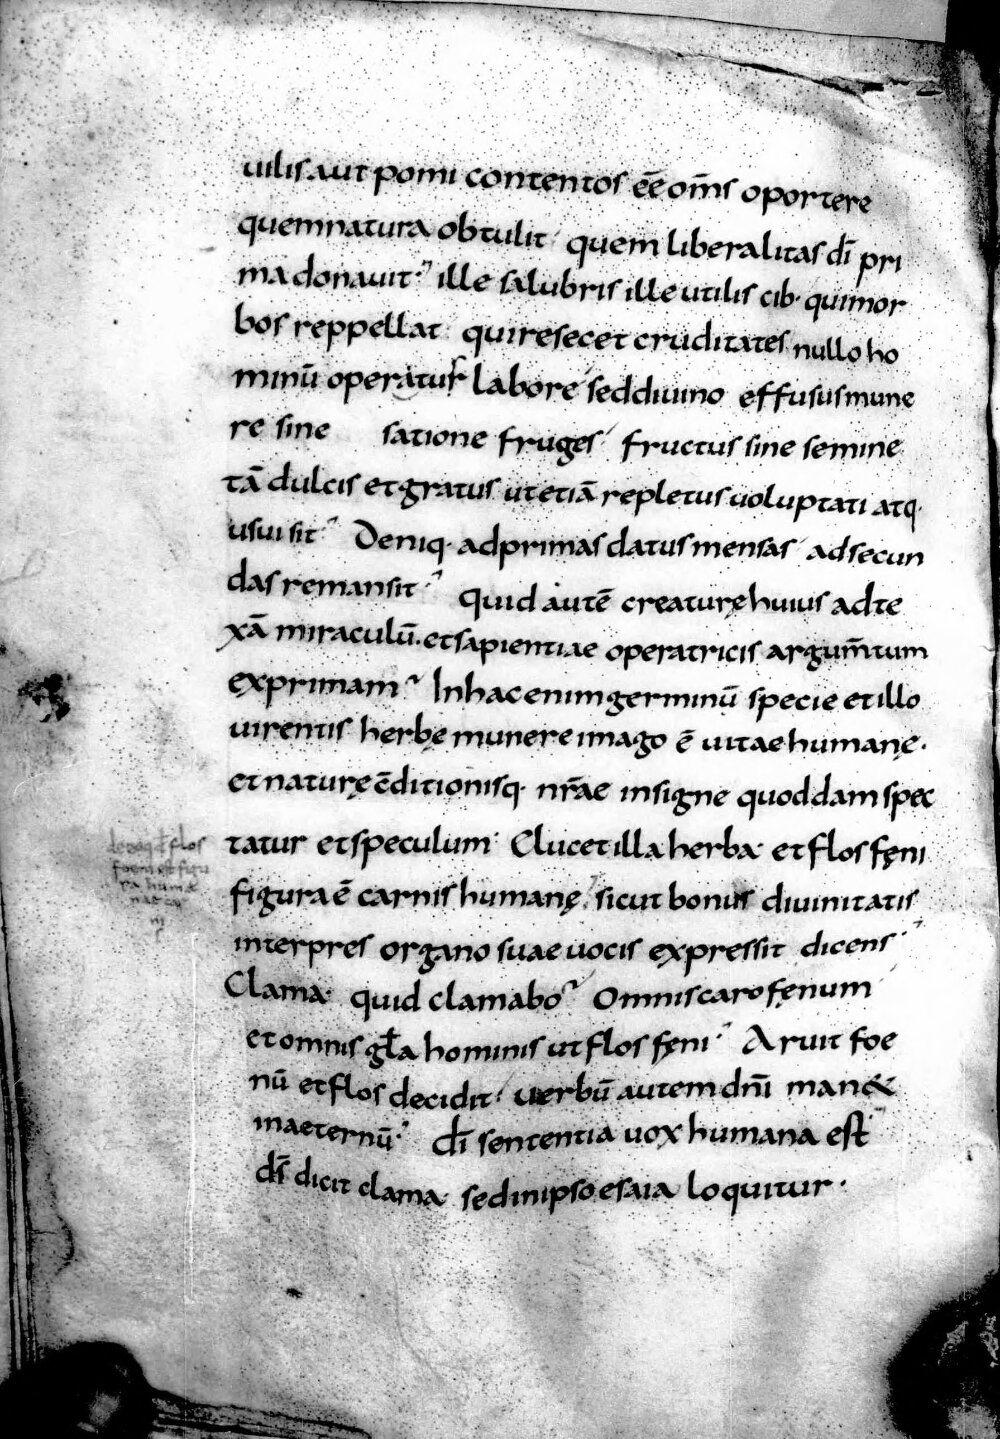 uilis aut pomi contentos ēē om̄s oportere
quem natura obtulit quem liberalitas dī pri
ma donauit ille salubris ille utilis cib· qui mor
bos reppellat qui resecet cruditates nullo ho
minū operatur labore sed diuino effusus mune
re sine satione fruges fructus sine semine
tā dulcis et gratus ut etiā repletus uoluptati atq·
usui sit Deniq· ad primas datus mensas ad secun
das remansit Quid autē creaturę huius ad te
xā miraculū et sapientiae operatricis argum̄tum
exprimam In hac enim germinū specie et illo
uirentis herbę munere imago ē uitae humanę·
et naturę c̄ditionisq· nr̄ae insigne quoddam spec
tatur et speculum· Elucet illa herba et flos fęni
figura ē carnis humanę, sicut bonus diuinitatis
interpres organo suae uocis expressit dicens·
Clama· quid clamabo Omnis caro fęnum
et omnis gła hominis ut flos fęni Aruit foe
nū et flos decidit uerbū autem dn̄i man&
in aeternū· dī sententia uox humana est
ds̄ dicit clama sed in ipso esaia loquitur·
flos
foeni est figu
ra human